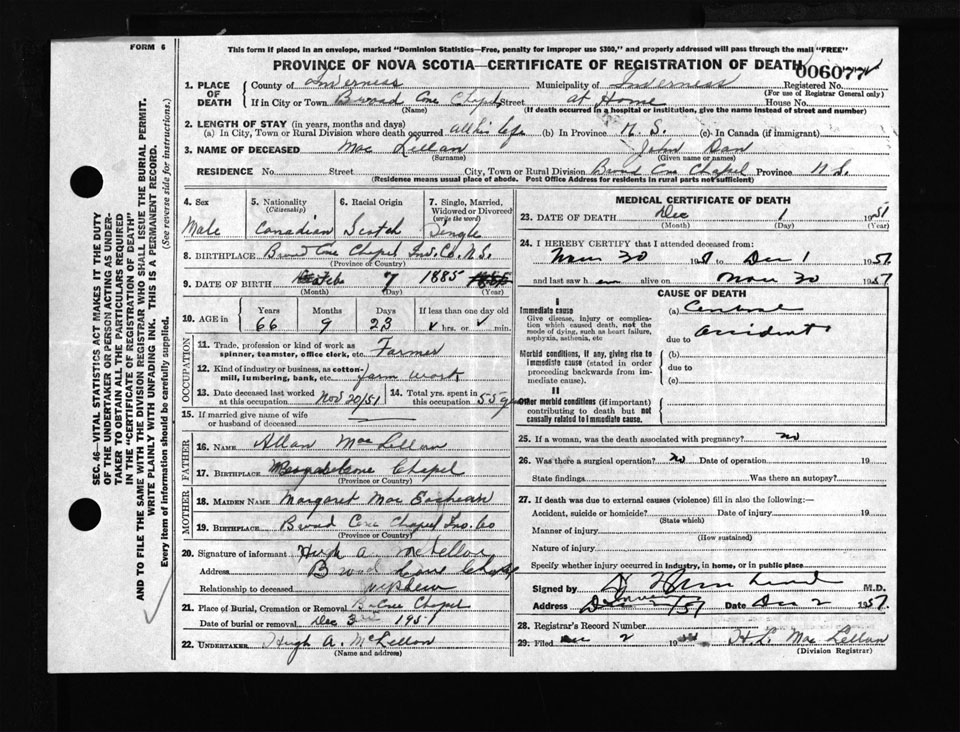 FORM 6
This form if placed in an envelope, marked "Dominion Statistics—Free, penalty for improper use $300," and properly addressed will pass through the mail "FREE"
PROVINCE OF NOVA SCOTIA—CERTIFICATE OF REGISTRATION OF DEATH
006077
1. PLACE OF DEATH
County of Inverness Municipality of Inverness Registered No.
(For use of Registrar General only)
If in City or Town Broad Cove Chapel Street at Home House No.
(If death occurred in a hospital or institution, give the name instead of street and number)
2. LENGTH OF STAY (in years, months and days)
(a) In City, Town or Rural Division where death occurred all his life (b) In Province N.S. (c) In Canada (if immigrant)
3. NAME OF DECEASED Mac Lellan John Dan
(Surname) (Given name or names)
RESIDENCE No. Street City, Town or Rural Division Broad Cove Chapel Province N.S.
(Residence means usual place of abode. Post Office Address for residents in rural parts not sufficient)
4. Sex
Male
5. Nationality
(Citizenship)
Canadian
6. Racial Origin
Scotch
7. Single, Married, Widowed or Divorced
(write the word)
Single
8. BIRTHPLACE Broad Cove Chapel Inv. Co. N.S.
(Province or Country)
9. DATE OF BIRTH 7 1885
(Month) (Day) (Year)
10. AGE in
Years Months Days If less than one day old
66 9 23 hrs. or min.
OCCUPATION
11. Trade, profession or kind of work as
spinner, teamster, office clerk, etc. Farmer
12. Kind of industry or business, as cotton-
mill, lumbering, bank, etc. farm work
13. Date deceased last worked
at this occupation Nov 20/51
14. Total yrs. spent in
this occupation 55
15. If married give name of wife
or husband of deceased
FATHER
16. NAME Allan Mac Lellan
17. BIRTHPLACE Cove Chapel
(Province or Country)
MOTHER
18. MAIDEN NAME Margaret Mac Eachean
19. BIRTHPLACE Broad Cove Chapel Inv. Co
(Province or Country)
20. Signature of informant Hugh A. McLellan
Address Broad Cove Chapel
Relationship to deceased nephew
21. Place of Burial, Cremation or Removal B. Cove Chapel
Date of burial or removal Dec 3 1951
22. UNDERTAKER Hugh A. McLellan
(Name and address)
MEDICAL CERTIFICATE OF DEATH
23. DATE OF DEATH Dec 1 1951
(Month) (Day) (Year)
24. I HEREBY CERTIFY that I attended deceased from:
Nov 30 1951 to Dec 1 1951
and last saw h alive on Nov 30 1951
CAUSE OF DEATH
I
Immediate cause
Give disease, injury or complication which caused death, not the mode of dying, such as heart failure, asphyxia, asthenia, etc
(a) Cerebral
Accident
due to
Morbid conditions, if any, giving rise to immediate cause (stated in order proceeding backwards from immediate cause).
(b)
due to
(c)
II
Other morbid conditions (if important) contributing to death but not causally related to immediate cause.
25. If a woman, was the death associated with pregnancy? no
26. Was there a surgical operation? no Date of operation 19
State findings Was there an autopsy?
27. If death was due to external causes (violence) fill in also the following:—
Accident, suicide or homicide? Date of injury 19
(State which)
Manner of injury
(How sustained)
Nature of injury
Specify whether injury occurred in industry, in home, or in public place
Signed by M.D.
Address Date Dec 2 1951
28. Registrar's Record Number
29. Filed Dec 2 19 H. L. Mac Lellan
(Division Registrar)
SEC. 46—VITAL STATISTICS ACT MAKES IT THE DUTY
OF THE UNDERTAKER OR PERSON ACTING AS UNDER-
TAKER TO OBTAIN ALL THE PARTICULARS REQUIRED
IN THE "CERTIFICATE OF REGISTRATION OF DEATH"
AND TO FILE THE SAME WITH THE DIVISION REGISTRAR WHO SHALL ISSUE THE BURIAL PERMIT.
WRITE PLAINLY WITH UNFADING INK. THIS IS A PERMANENT RECORD.
Every item of information should be carefully supplied. (See reverse side for instructions.)